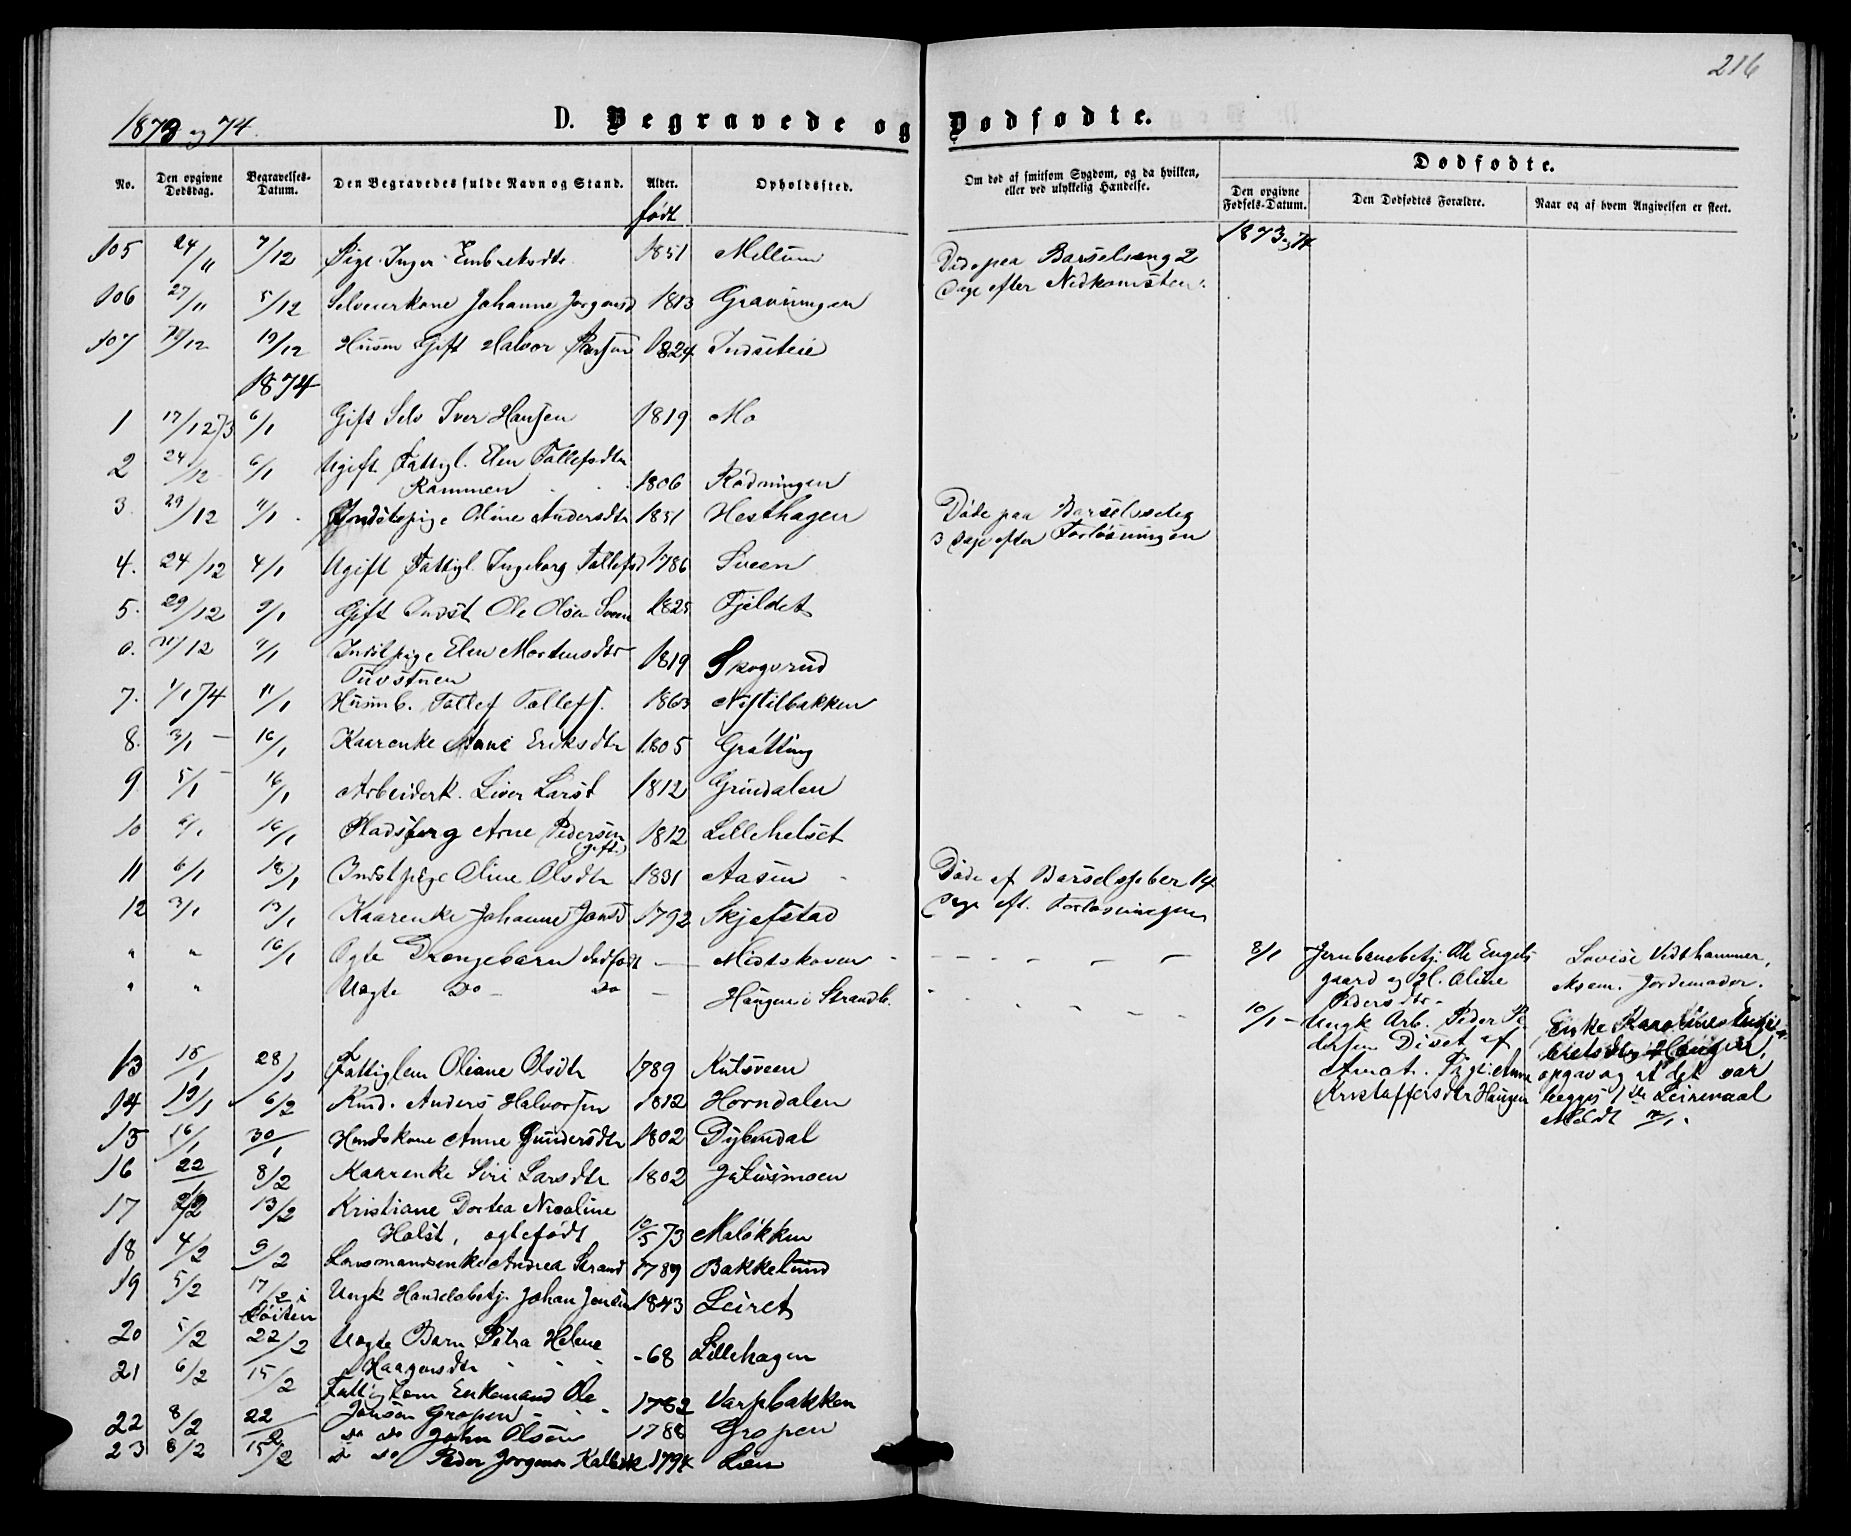 216
1873 og 74.
D. Begravede og Dødfødte.
No. Den opgivne Dødsdag. Begravelses-Datum. Den Begravedes fulde Navn og Stand. Alder. født Opholdssted.
Om død af smitsom Sygdom, og da hvilken, eller ved ulykkelig Hændelse.
Dødfødte.
Den opgivne Fødsels-Datum. Den Dødfødtes Forældre. Naar og af hvem Angivelsen er skeet.
1873 og 74
105 24/11 7/12 Pige Inger Embretsdtr 1851 Mellum Døde paa Barselseng 2
Dage efter Nedkomsten.
106 27/11 5/12 Selveierkone Johanne Jorgensd 1813 Gravningen
107 12/12 19/12 Husm Gift Halvor 1824 Indseteie
1874
1 17/12 73 6/1 Gift Selv Iver Hansen 1819 Mo
2 24/12 6/1 Ugift Fattigl. Elen Tollefsdtr
Rammen 1806 Rødningen
3 29/12 11/1 Indstpige Oline Andersdtr 1851 Hesthagen Døde paa Barselseng
3 Dage efter Forløsningen
4. 24/12 4/1 Ugift Fattigl. Ingeborg Tollefsd 1786 Sveen
5. 29/12 9/1 Gift Indst Ole Olsen Sveen 1825 Fjeldet
6. 31/12 11/1 Indstpige Elen Mortensdtr 1819 Skogsrud
Tuvstuen
7. 1/1 74 11/1 Husmb. Tollef Tollefs. 1863 Nistilbakken
8. 3/1 16/1 Kaarenke Mari Eriksdtr 1805 Grøtting
9 5/1 16/1 Arbeiderk. Lisor Larsd 1812 Grindalen
10 6/1 16/1 Pladsborg Arne Pedersen
(gift) 1812 Lillehelset
11 6/1 18/1 Indstpige Oline Olsdtr 1831 Aasen Døde af Barselfeber 14
Dage eft. Forløsningen
12 3/1 13/1 Kaarenke Johanne Jonsd 1792 Skjefstad
" " 16/1 Ægte Drengebarn dødfødt — Mistskoven 8/1 Jernbanebetj. Ole Engels
gaard og H. Oline
Pedersdtr Lovise Vedthammer,
exam. Jordemoder.
" " Uægte do do — Haugen i Strandb. 10/1 Ungk Arb. Peder Pe
dersen Diset af
Amot. Pige Anne
Kristoffersdtr Haugen Enke Karoline Enge
bretsdtr Haugen,
opgav og at det var
begges 1ste Leiermaal
Meldt
13 15/1 28/1 Fattiglem Oliane Olsdtr 1789 Kulsveen
14 19/1 6/2 Kud. Anders Halvorsen 1812 Horndalen
15 16/1 30/1 Huuskone Anne Gundersdtr 1802 Dybendal
16 22/1 8/2 Kaarenke Siri Larsdtr 1802 Julusmoen
17 2/2 13/2 Kristiane Dortea Nicoline
Holst, ægtefødt 10/5 73 Maløkken
18 4/2 9/2 Lensmandsenke Andrea Strand 1789 Bakkelund
19 5/2 17/2 i
Løiten Ungk Handelsbetj. Johan Jensen 1843 Leiret
20 5/2 22/2 Uægte Barn Petra Helene
Haagensdtr -68 Lillehagen
21 6/2 15/2 Fattiglem Enkemand Ole
Jonsen Gropen 1782 Varpbakken
22 8/2 22/2 do do John Olsen 1788 Gropen
23 8/2 15/2 do do Peder Jorgensen 1794 Løen